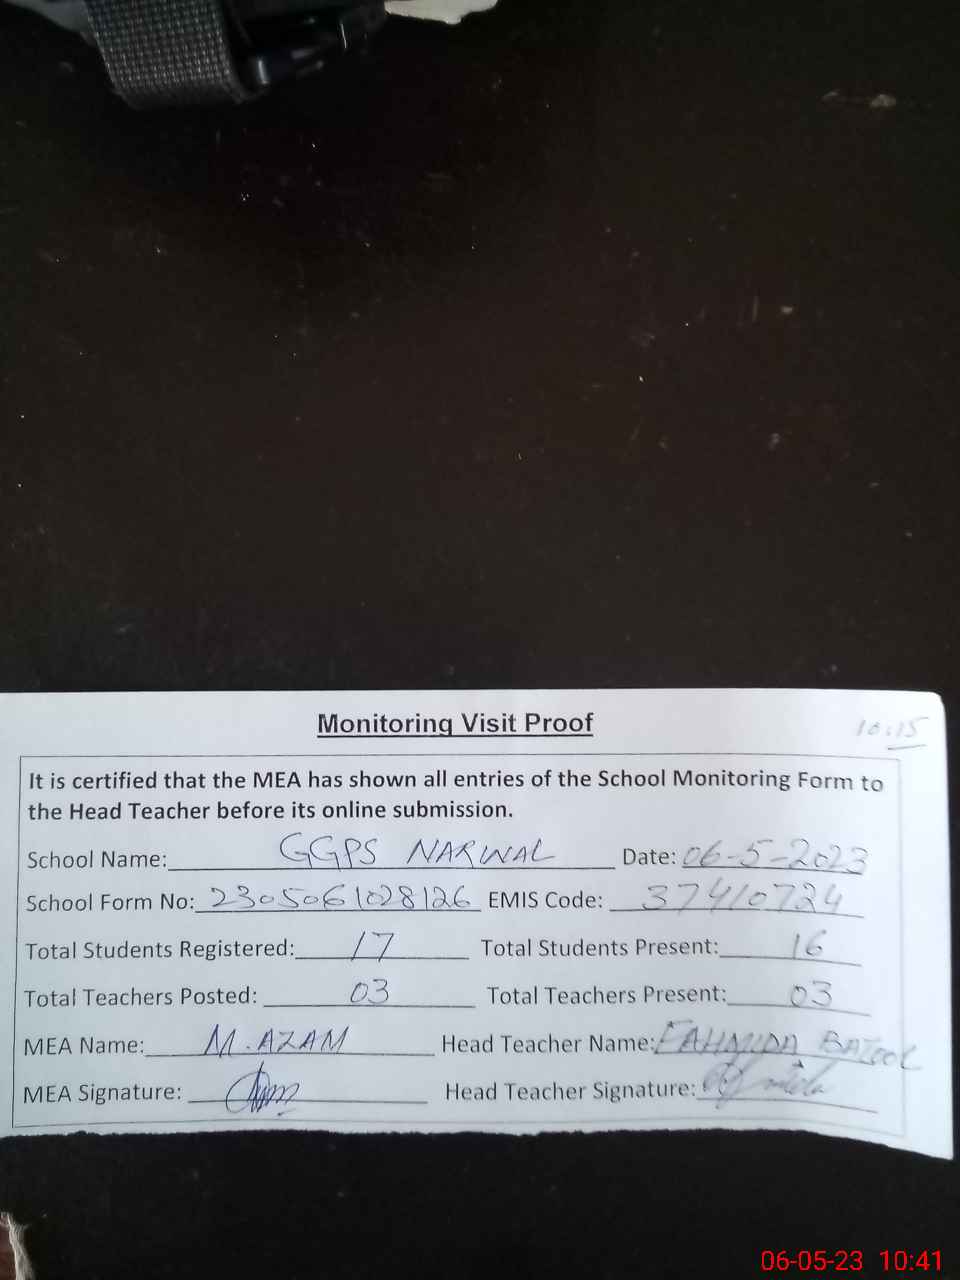 Monitoring Visit Proof
10:15
It is certified that the MEA has shown all entries of the School Monitoring Form to
the Head Teacher before its online submission.
School Name: GGPS NARWAL Date: 06-5-2023
School Form No: 2305061028126 EMIS Code: 37410724
Total Students Registered: 17 Total Students Present: 16
Total Teachers Posted: 03 Total Teachers Present: 03
MEA Name: M.AZAM Head Teacher Name: FAHMIDA BATOOL
MEA Signature: Head Teacher Signature:
06-05-23 10:41